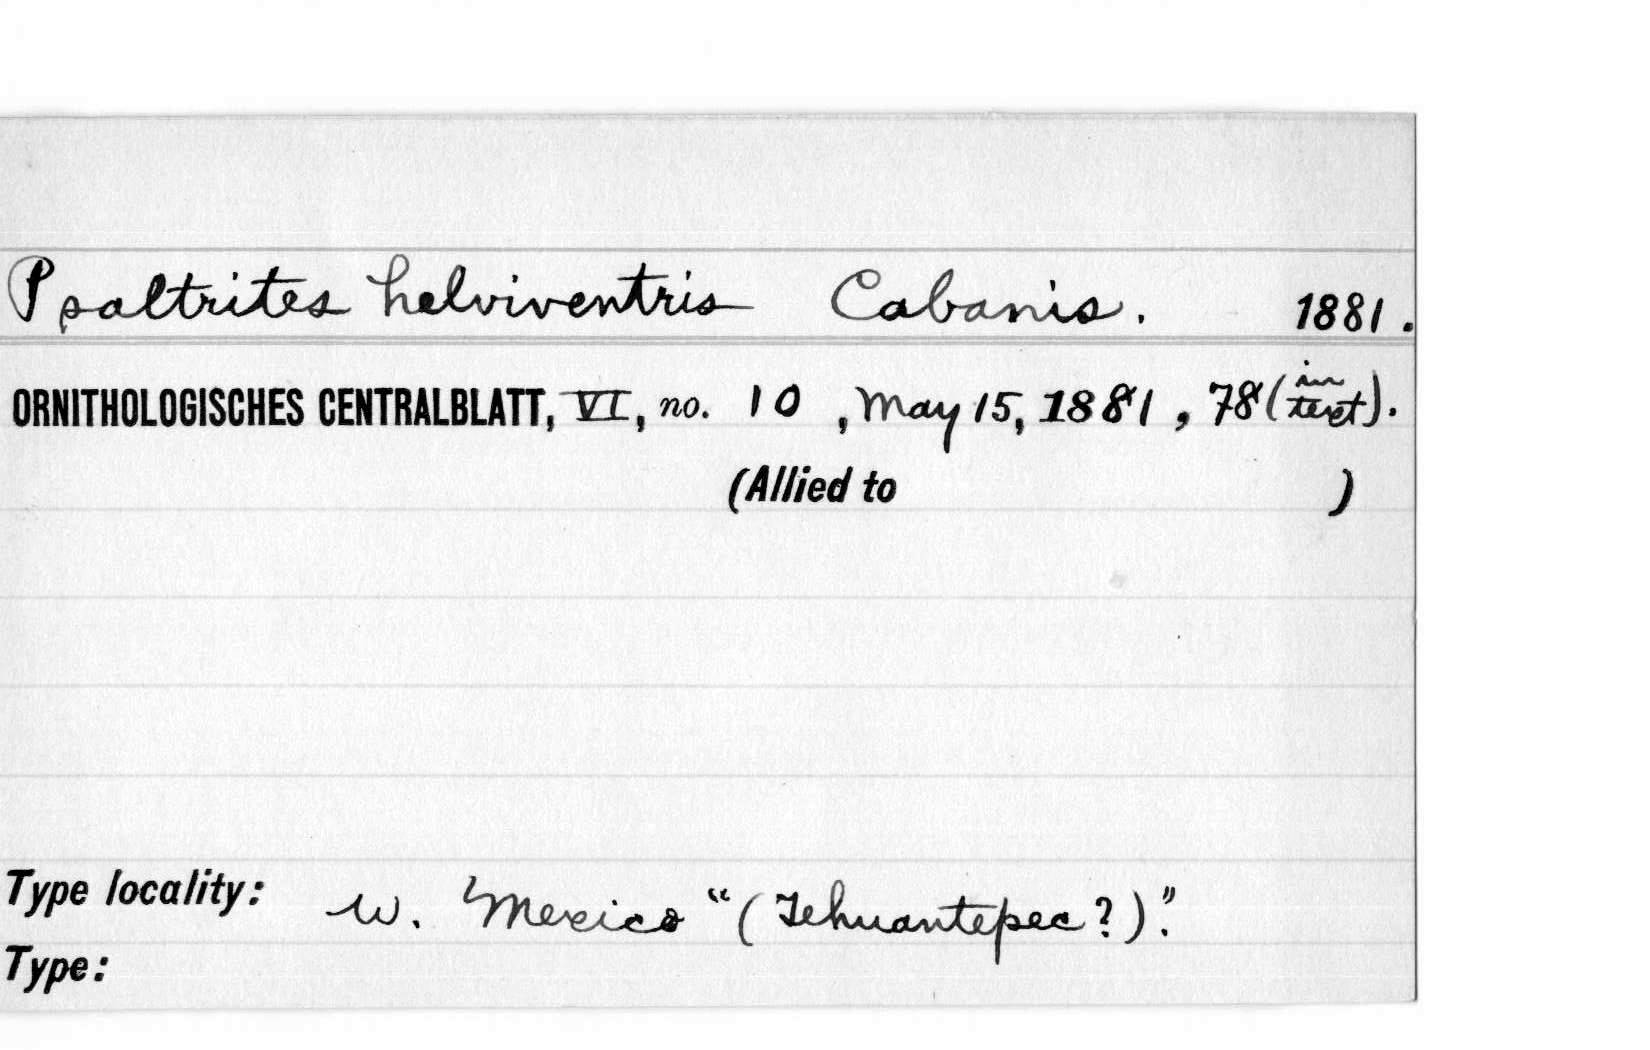 Psaltrites helviventris Cabanis. 1881.
ORNITHOLOGISCHES CENTRALBLATT, VI, no. 10, May 15, 1881, 78 (in text).
(Allied to )
Type locality: W. Mexico "(Tehuantepec?)."
Type: